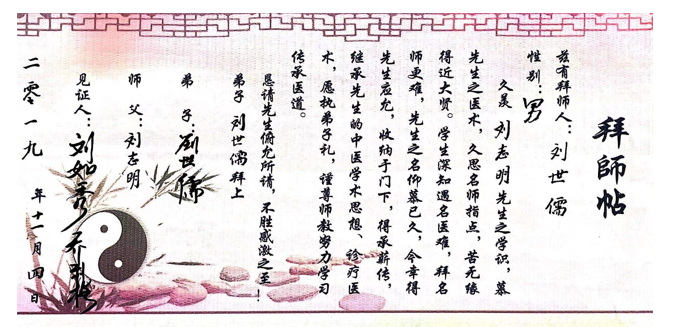 拜師帖
兹有拜师人：刘世儒
性别：男
久昊刘志明先生之学识，慕
先生之医术，久思名师指点，苦无缘
得近大贤。学生深知遇名医难，拜名
师更难，先生之名仰慕已久，今幸得
先生应允，收纳于门下，得承薪传，
继承先生的中医学术思想、诊疗医
术，愿执弟子礼，谨尊师教努力学习
传承医道。
恳请先生俯允所请，不胜感激之至！
弟子刘世儒拜上
弟子：劉世儒
师父：刘志明
见证人：刘如秀
二零一九年十一月四日